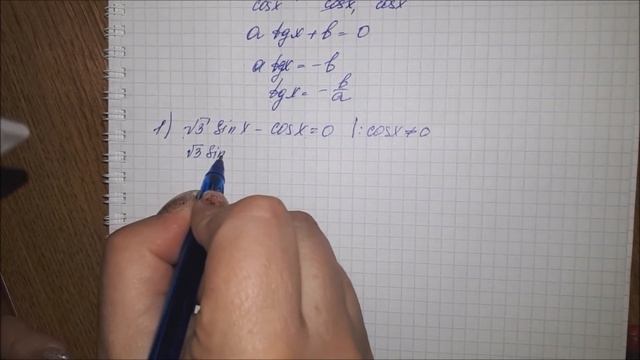 cosx cosx, cosx
a tgx + b = 0
a tgx = -b
tgx = - b/a
1) √3 sinx - cosx = 0 |: cosx ≠ 0
√3 sin